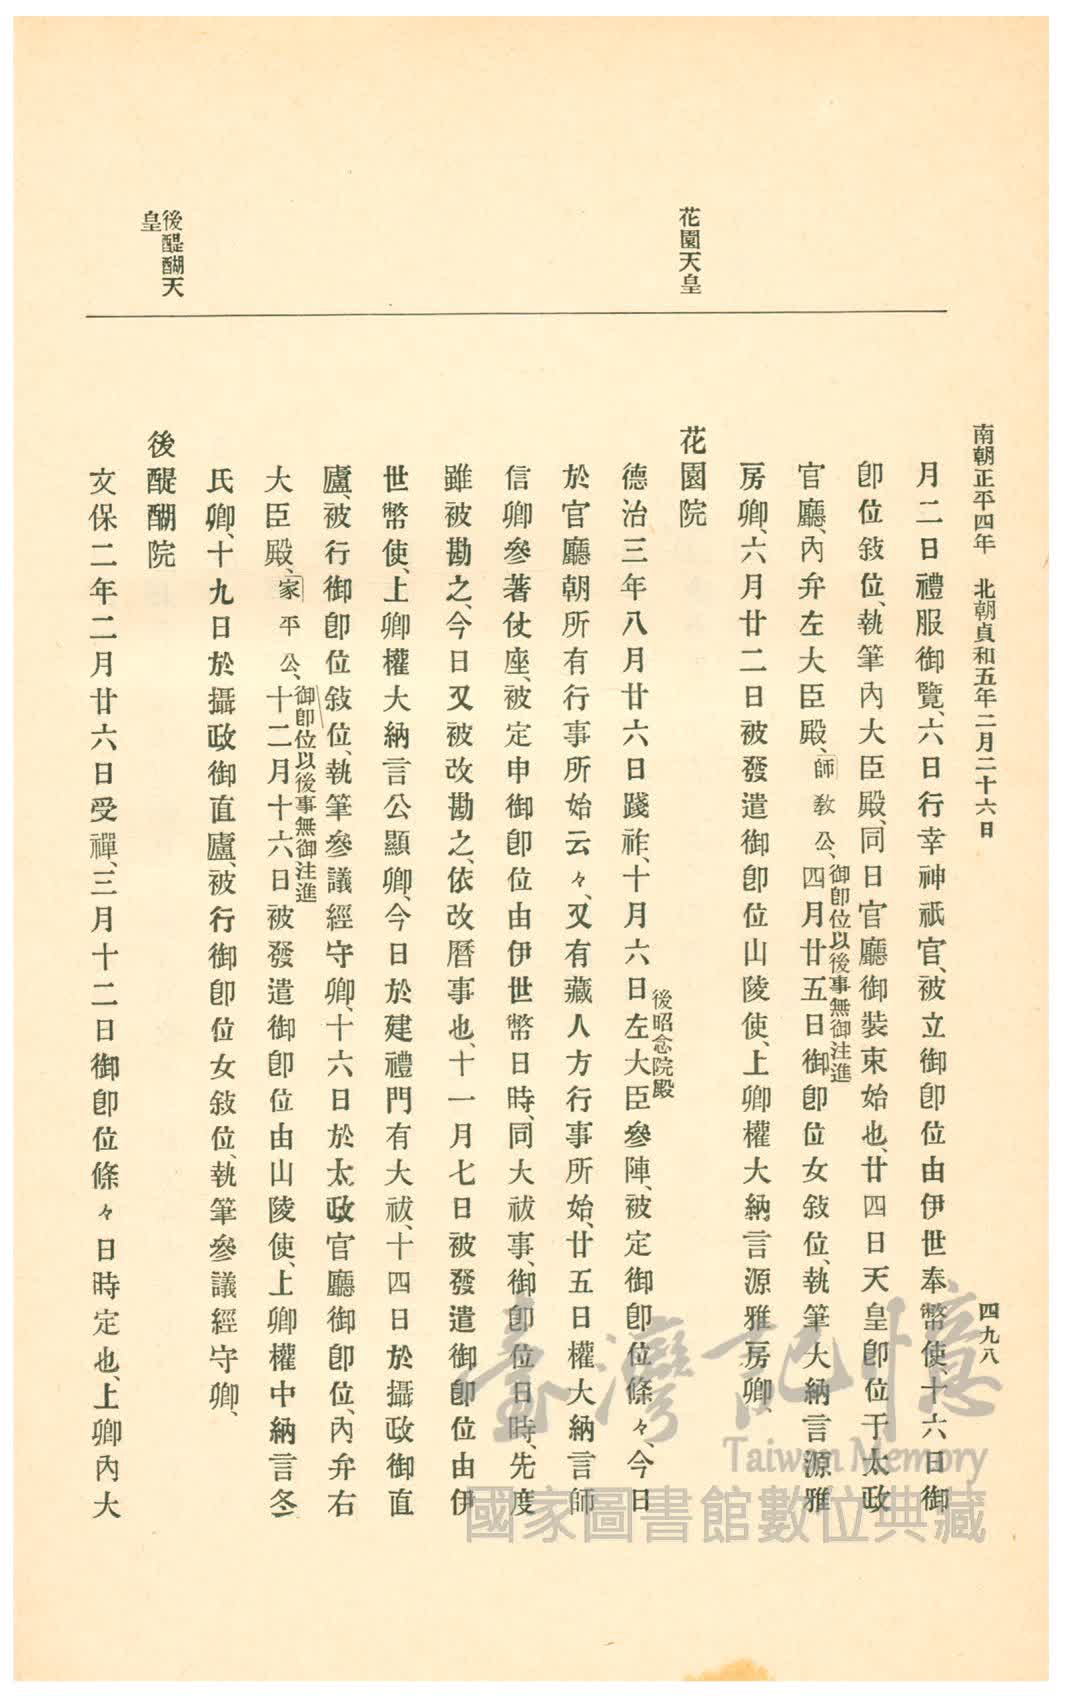 南朝正平四年　北朝貞和五年二月二十六日
四九八
花園天皇
後醍醐天
皇
月二日禮服御覽、六日行幸神祇官、被立御卽位由伊世奉幣使、十六日御
卽位敍位、執筆內大臣殿、同日官廳御裝束始也、廿四日天皇卽位于太政
官廳、內弁左大臣殿、師敎公、四月廿五日御卽位女敍位、執筆大納言源雅
御卽位以後事無御注進
房卿、六月廿二日被發遣御卽位山陵使、上卿權大納言源雅房卿、
花園院
德治三年八月廿六日踐祚、十月六日左大臣參陣、被定御卽位條々、今日
後昭念院殿
於官廳朝所有行事所始云々、又有藏人方行事所始、廿五日權大納言師
信卿參著仗座、被定申御卽位由伊世幣日時、同大祓事、御卽位日時、先度
雖被勘之、今日又被改勘之、依改曆事也、十一月七日被發遣御卽位由伊
世幣使、上卿權大納言公顯卿、今日於建禮門有大祓、十四日於攝政御直
廬、被行御卽位敍位、執筆參議經守卿、十六日於太政官廳御卽位、內弁右
大臣殿、家平公、十二月十六日被發遣御卽位由山陵使、上卿權中納言冬
御卽位以後事無御注進
氏卿、十九日於攝政御直廬、被行御卽位女敍位、執筆參議經守卿、
後醍醐院
文保二年二月廿六日受禪、三月十二日御卽位條々日時定也、上卿內大
臺灣記憶
Taiwan Memory
國家圖書館數位典藏